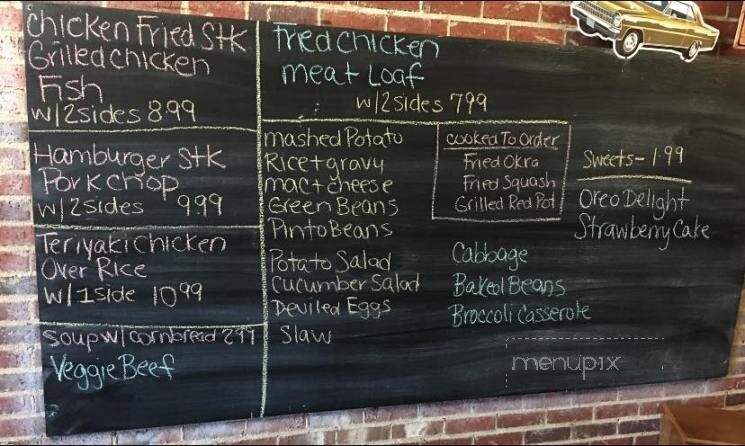 Chicken Fried Stk
Grilled Chicken
Fish
w/2sides 8.99
Fried Chicken
meat Loaf
w/2sides 7.99
Hamburger Stk
Pork chop
w/2sides 9.99
Teriyaki Chicken
Over Rice
w/1side 10.99
Soup w/cornbread 2.99
Veggie Beef
mashed Potato
Rice + gravy
mac + cheese
Green Beans
Pinto Beans
Potato Salad
Cucumber Salad
Deviled Eggs
Slaw
Cooked To Order
Fried Okra
Fried Squash
Grilled Red Pot
Cabbage
Baked Beans
Broccoli Casserole
Sweets - 1.99
Oreo Delight
Strawberry Cake
menupix